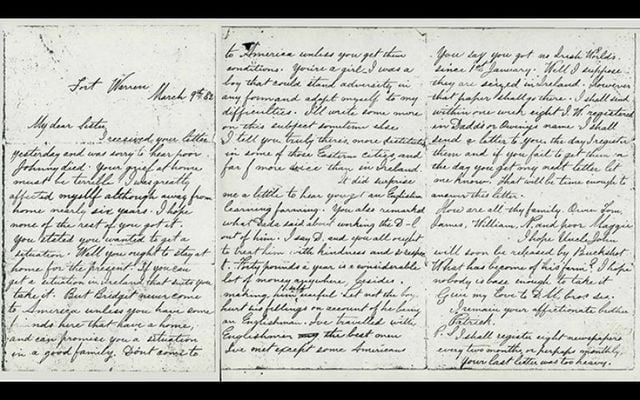 Fort Warren
March 9th 82
My dear Sister
I received your letter
yesterday and was sorry to hear poor
Johnny died. Your grief at home
must be terrible I was greatly
affected myself although away from
home nearly six years. I hope
none of the rest of you got it.
You stated you wanted to get a
situation. Well you ought to stay at
home for the present. If you can
get a situation in Ireland, that suits you
take it. But Bridget never come
to America unless you have some
friends here that have a home,
and can promise you a situation
in a good family. Dont come to
to America unless you get them
conditions. You're a girl. I was a
boy that could stand adversity in
any form and adapt myself to my
difficulties. I'll write some more
on this subject sometime else
I tell you truly there's more destitute
in some of those Eastern Cities and
far more vice than in Ireland
It did surprise
me a little to hear you got an English
learning farming. You also remarked
what Dada said about working the D-l
out of him. I say D. and you all ought
to treat him with kindness and respect
Forty pounds a year is a considerable
lot of money anywhere, besides
making him useful. Let not the boy
hurt his feelings on account of he being
an Englishman. I've travelled with
Englishmen the best men
I've met except some Americans
You say you got no Irish Worlds
since 1st January. Well I suppose
they are seized in Ireland. However
that paper shall go there. I shall send
within one week eight I.W. registered
in Dadds or Oweing name I shall
send a letter to you the day I register
them and if you fail to get them on
the day you get my next letter let
me know. That will be time enough to
answer this letter.
How are all thy family. Owen Tom,
James, William, N. and poor Maggie
I hope Uncle John
will soon be released by Buckshot
What has become of his farm? I hope
nobody is base enough to take it
Give my love to D.M. bros ses.
I remain your affectionate brother
Patrick.
P.S. I shall register eight newspapers
every two months or perhaps monthly.
Your last letter was too heavy.